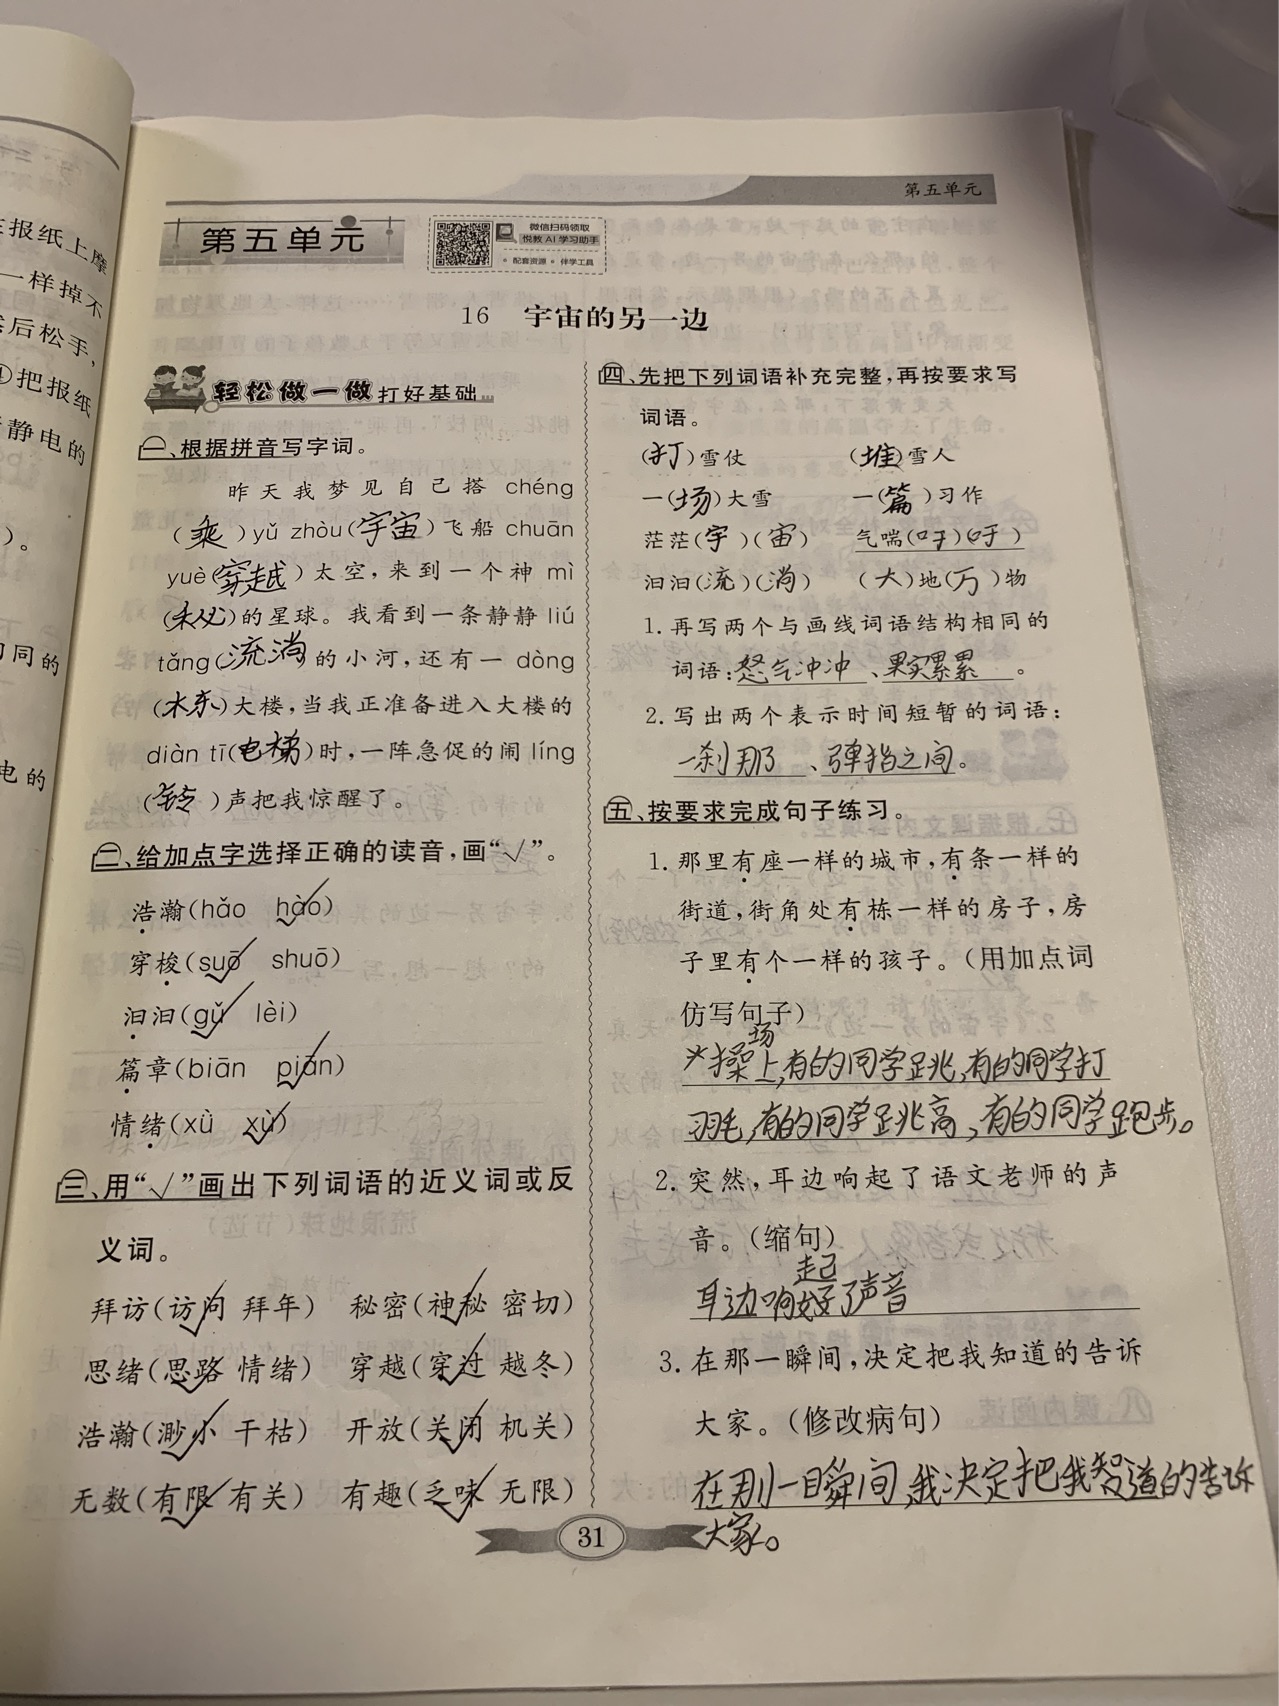 在报纸上摩
一样掉不
然后松手,
①把报纸
静电的
)。
同的
电的
第五单元
第五单元
微信扫码领取
悦教AI学习助手
• 配套资源 • 伴学工具
16 宇宙的另一边
轻松做一做 打好基础
一、根据拼音写字词。
昨天我梦见自己搭 chéng
(乘)yǔ zhòu(宇宙)飞船 chuān
yuè(穿越)太空,来到一个神 mì
( )的星球。我看到一条静静 liú
tǎng(流淌)的小河,还有一 dòng
( )大楼,当我正准备进入大楼的
diàn tī(电梯)时,一阵急促的闹 líng
(铃)声把我惊醒了。
二、给加点字选择正确的读音,画“√”。
浩瀚(hǎo hào√)
穿梭(suō√ shuō)
汩汩(gǔ√ lèi)
篇章(biān piān√)
情绪(xǜ xù√)
三、用“√”画出下列词语的近义词或反
义词。
拜访(访问√ 拜年) 秘密(神秘√ 密切)
思绪(思路√ 情绪) 穿越(穿过√ 越冬)
浩瀚(渺小√ 干枯) 开放(关闭√ 机关)
无数(有限√ 有关) 有趣(乏味√ 无限)
四、先把下列词语补充完整,再按要求写
词语。
(打)雪仗 (堆)雪人
一(场)大雪 一(篇)习作
茫茫(宇)(宙) 气喘(吁)(吁)
汩汩(流)(淌) (大)地(万)物
1. 再写两个与画线词语结构相同的
词语:怒气冲冲、果实累累。
2. 写出两个表示时间短暂的词语:
一刹那、弹指之间。
五、按要求完成句子练习。
1. 那里有座一样的城市,有条一样的
街道,街角处有栋一样的房子,房
子里有个一样的孩子。(用加点词
仿写句子)
操场上,有的同学跳,有的同学打
羽毛,有的同学跳高,有的同学跑步。
2. 突然,耳边响起了语文老师的声
音。(缩句)
耳边响起了声音
3. 在那一瞬间,决定把我知道的告诉
大家。(修改病句)
在那一瞬间,我决定把我智道的告诉
大家。
31